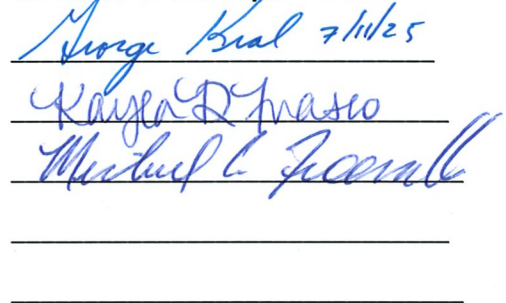 George Kral 7/11/25
Kayla D Frasco
Michael C.